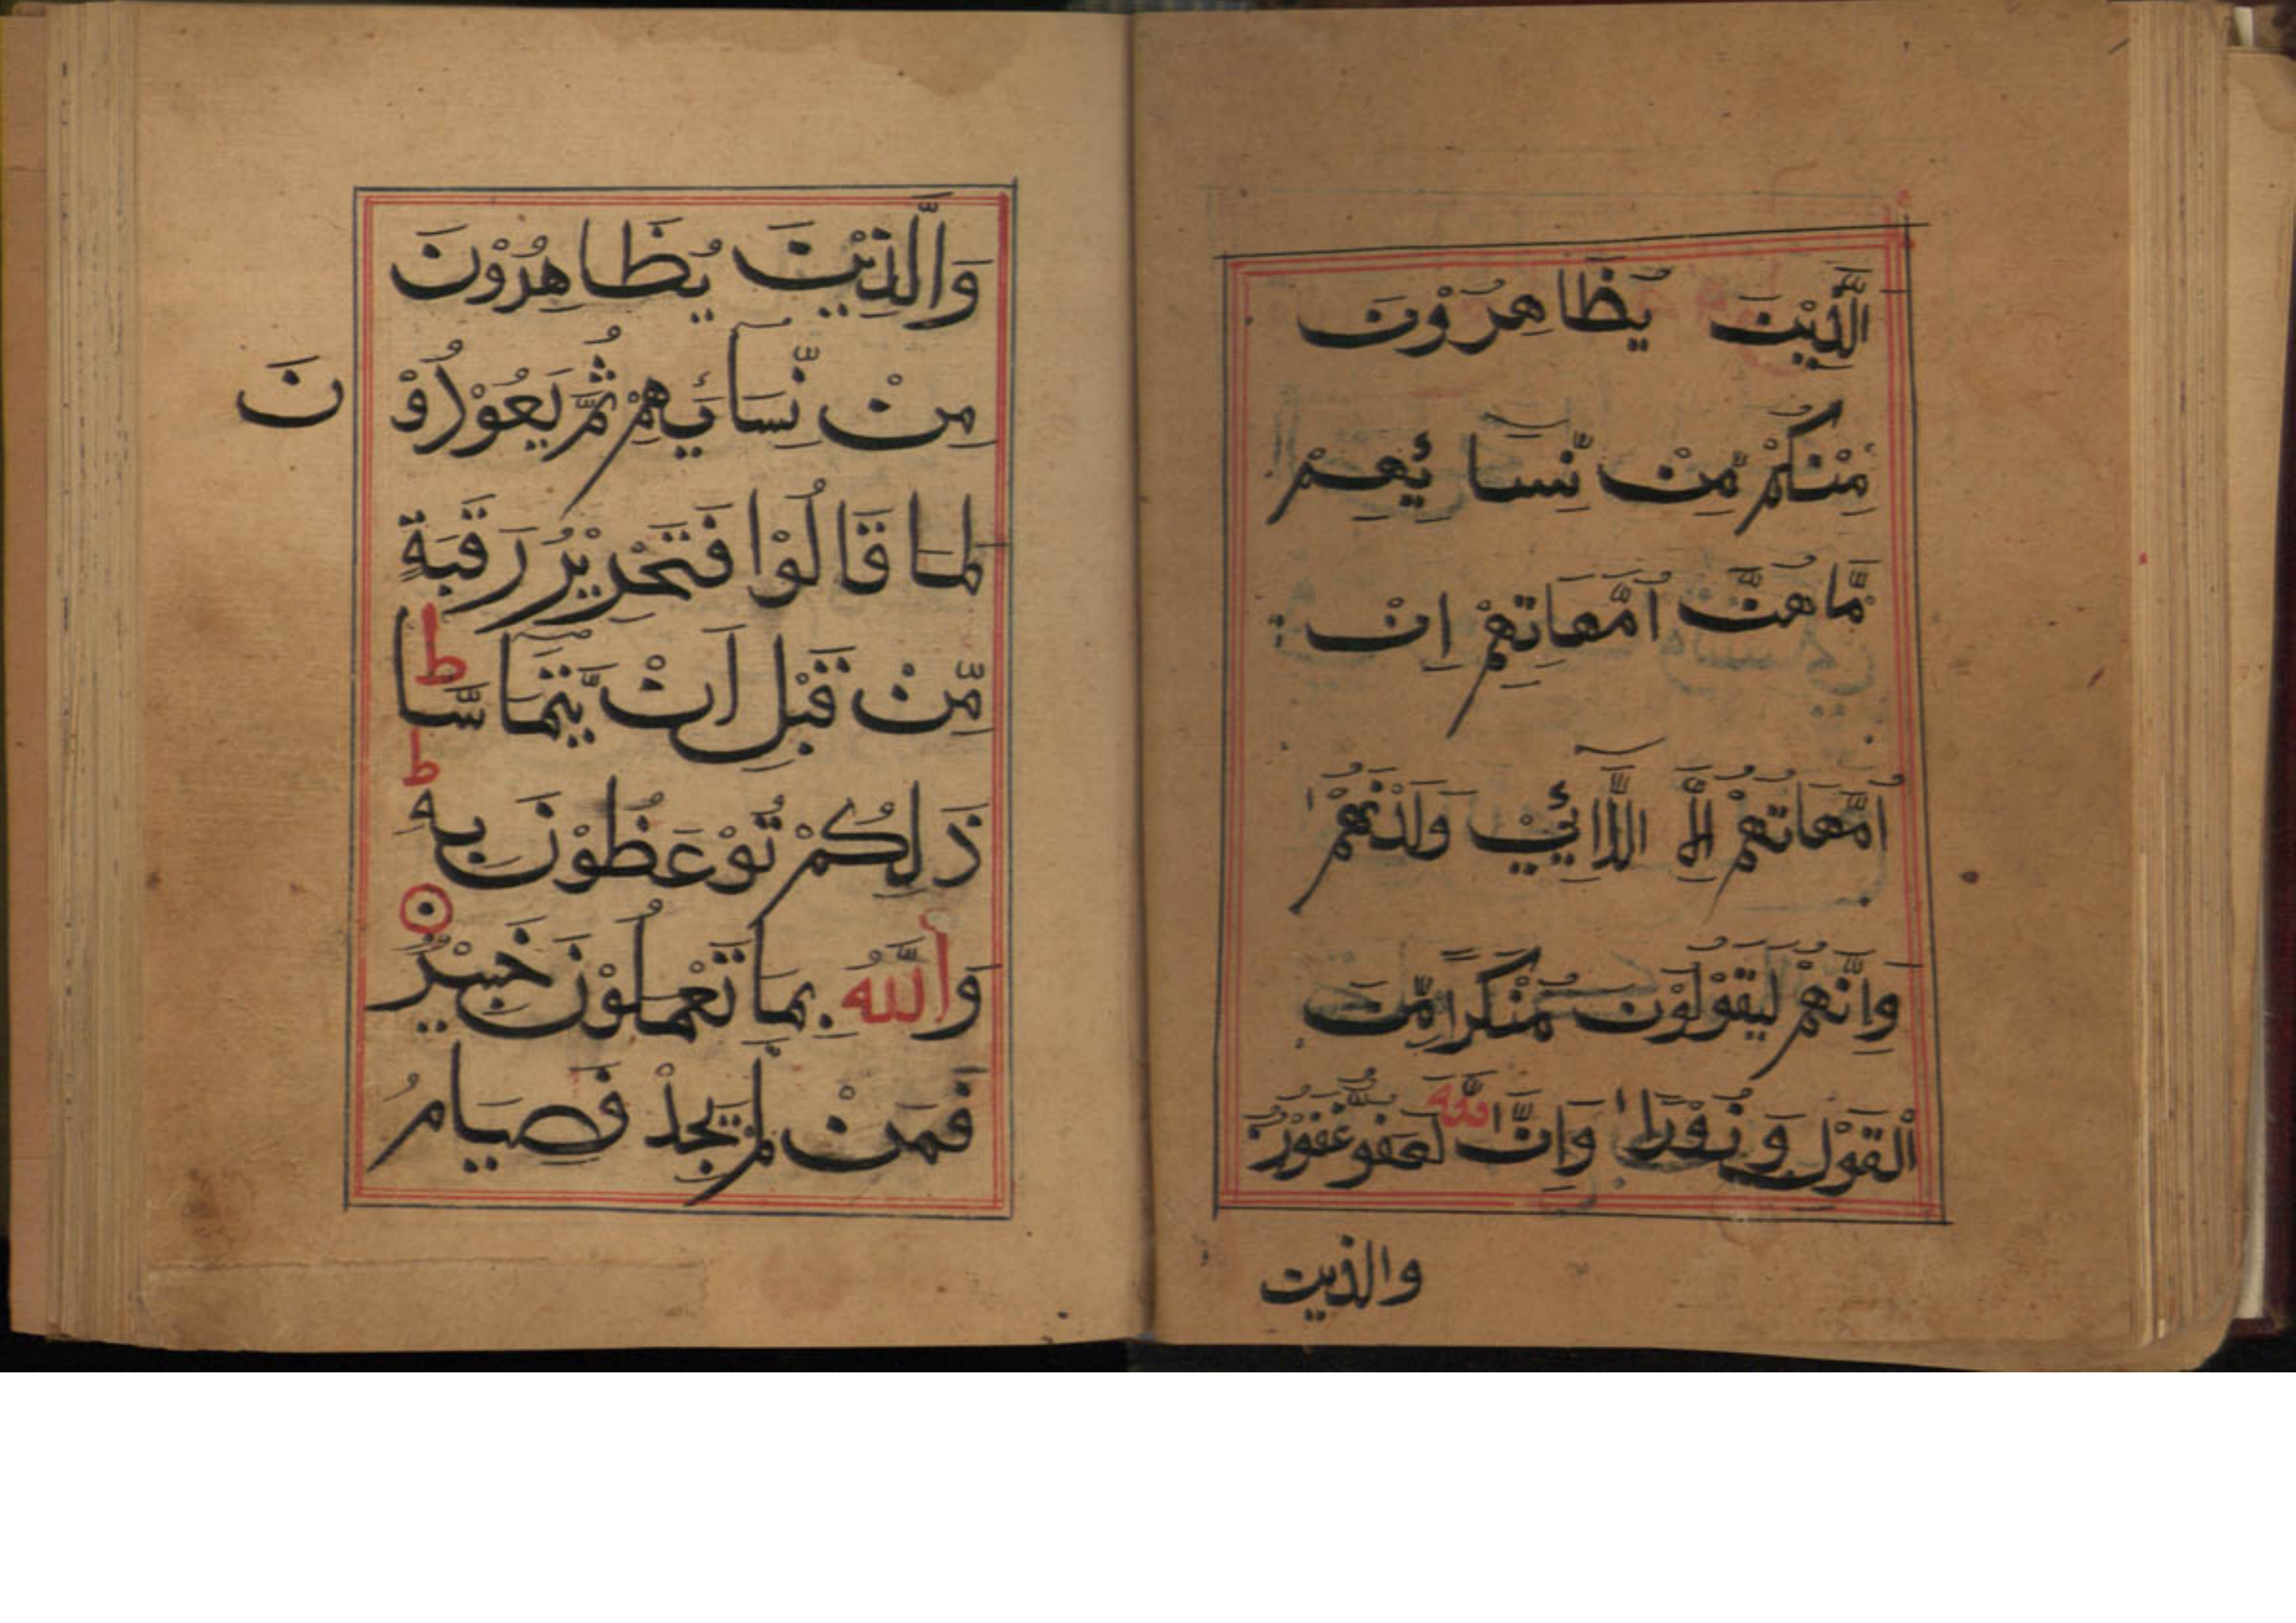 الَّذِيْنَ يُظَاهِرُوْنَ
مِنْكُمْ مِّنْ نِّسَآئِهِمْ
مَّاهُنَّ اُمَّهَاتِهِمْ اِنْ
اُمَّهَاتُهُمْ اِلَّا اللَّآئِيْ وَلَدْنَهُمْ
وَاِنَّهُمْ لَيَقُوْلُوْنَ مُنْكَرًا مِّنَ
الْقَوْلِ وَزُوْرًا وَاِنَّ اللّٰهَ لَعَفُوٌّ غَفُوْرٌ
والذين
وَالَّذِيْنَ يُظَاهِرُوْنَ
مِنْ نِّسَآئِهِمْ ثُمَّ يَعُوْدُوْنَ
لِمَا قَالُوْا فَتَحْرِيْرُ رَقَبَةٍ
مِّنْ قَبْلِ اَنْ يَّتَمَآسَّا ط
ذَلِكُمْ تُوْعَظُوْنَ بِهٖ ط
وَاللّٰهُ بِمَا تَعْمَلُوْنَ خَبِيْرٌ
فَمَنْ لَمْ يَجِدْ فَصِيَامُ